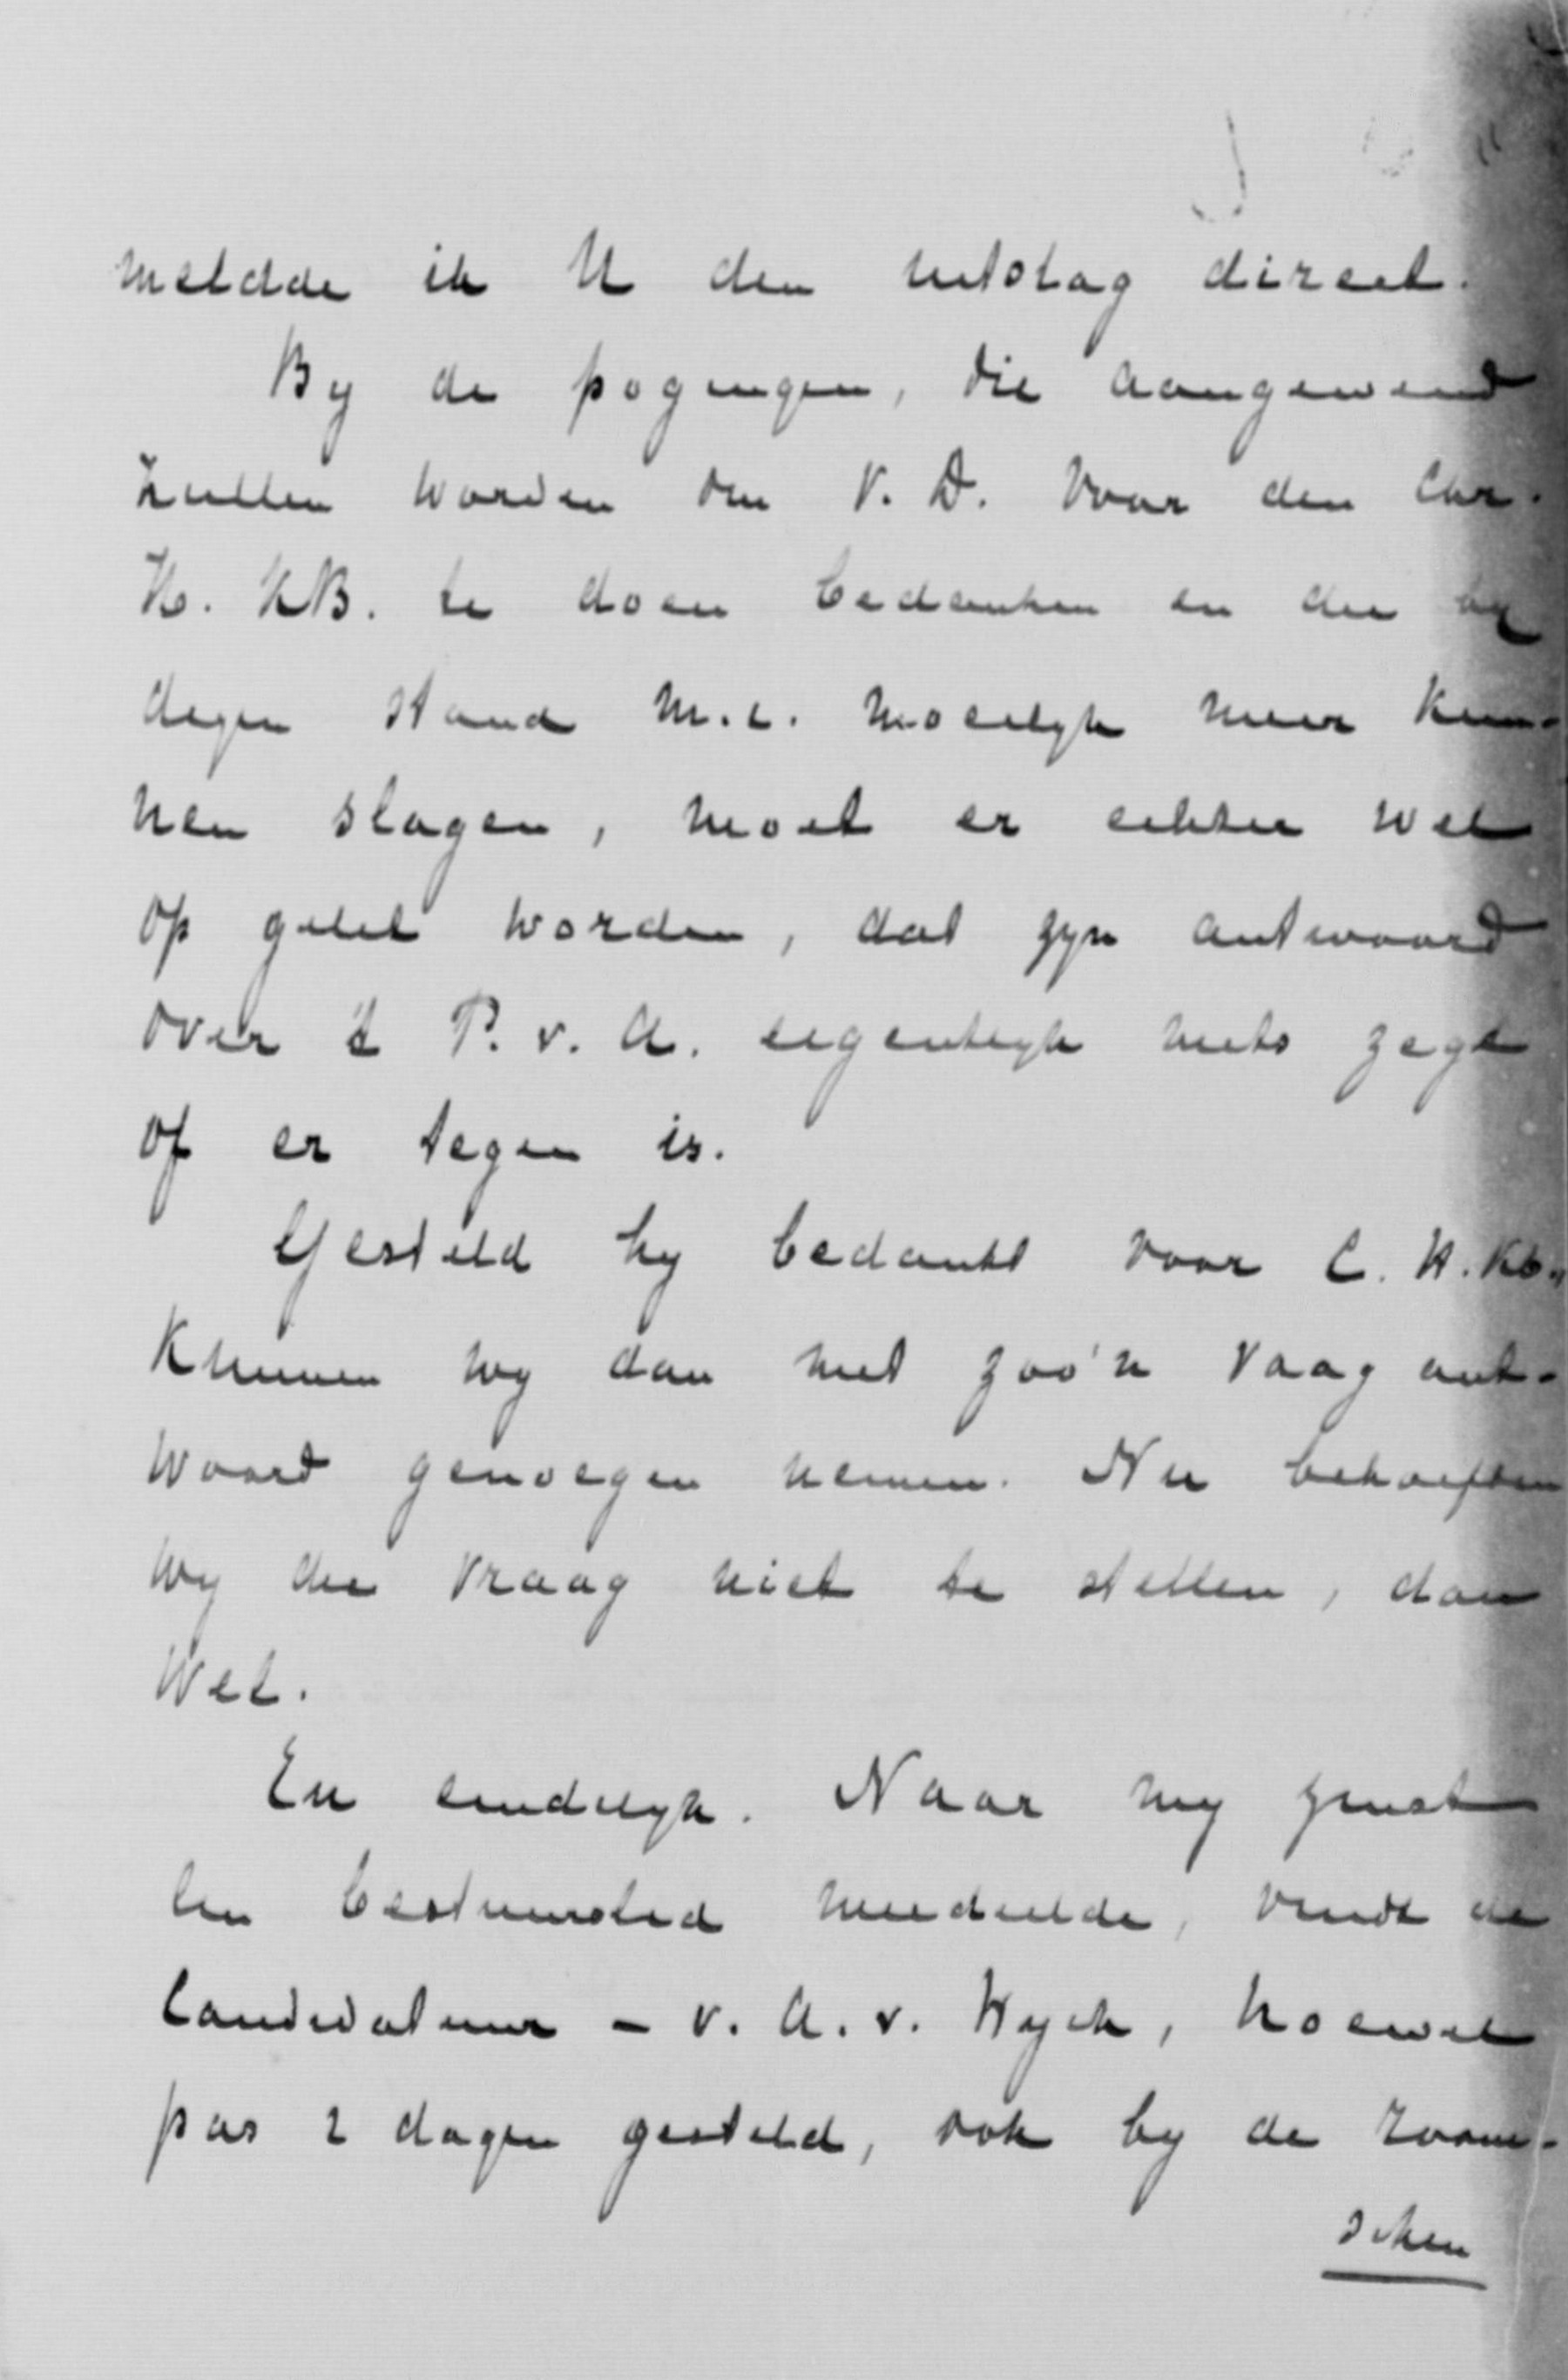 meldde ik U den uitslag direct.
By de pogingen, die aangewend
zullen worden om V. D. voor den Chr.
H. KB. te doen bedanken en die by
dezen stand m.i. moeilyk meer kun-
nen slagen, moet er echter wel
op gelet worden, dat zyn antwoord
over 't P. v. A. eigenlyk niets zegt
of er tegen is.
Gesteld hy bedankt voor C. H. Kb.,
Kunnen wy dan met zoo'n vaag ant-
woord genoegen nemen. Nu behoefden
wy die vraag niet te stellen, dan
wel.
En eindelyk. Naar my zeust
een bestuurslid meedeelde, vindt de
Candidatuur - v. A. v. Wyck, hoewel
pas 2 dagen gesteld, ook by de room-
schen